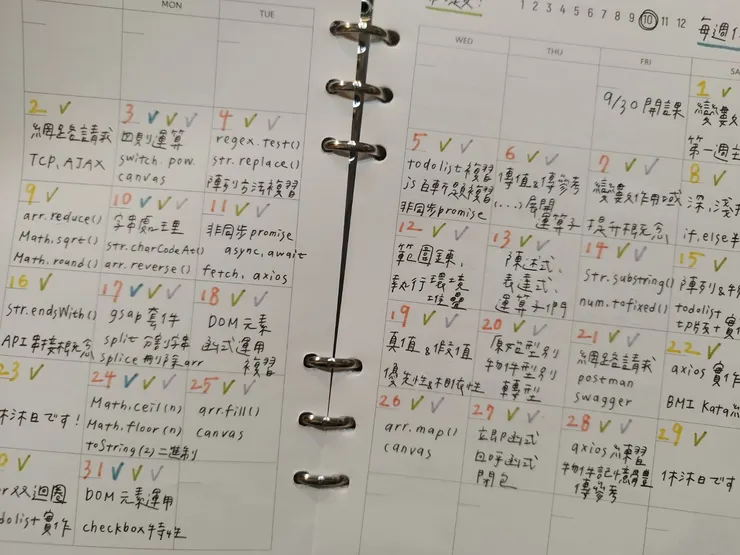 MON
TUE
2
網路請求
TCP、AJAX
3
回則運算
switch. pow.
canvas
4
regex.test()
str.replace()
陣列方法複習
9
arr.reduce()
Math.sqrt()
Math.round()
10
字串處理
str.charCodeAt()
arr.reverse()
11
非同步promise
async, await
fetch, axios
16
str.endsWith()
API串接概念
17
gsap 套件
split 分割字串
splice 刪除arr
18
DOM 元素
函式運用
複習
23
休沐日です!
24
Math.ceil(n)
Math.floor(n)
toString(2) 二進制
25
arr.fill()
canvas
or 双迴圈
dolist 實作
31
DOM 元素運用
checkbox特性
1 2 3 4 5 6 7 8 9 10 11 12
每週
WED
THU
FRI
SA
9/30 開課
1
變數
第一週主
5
todolist 複習
js 自動題複習
非同步promise
6
傳值&傳參考
(...)展開
運算子
7
變數作用域
提升概念
8
深、淺
if, else
12
範圍鍊、
執行環境
堆疊
13
陳述式、
表達式、
運算子們
14
str.substring()
num.toFixed()
15
陣列&物
todolist
19
真值&假值
優先性&相依性
20
原始型別
物件型別
轉型
21
網路請求
postman
swagger
22
axios 實作
BMI Kata
26
arr.map()
canvas
27
立即函式
回呼函式
閉包
28
axios 練習
物件記憶體
傳參考
29
休沐日です